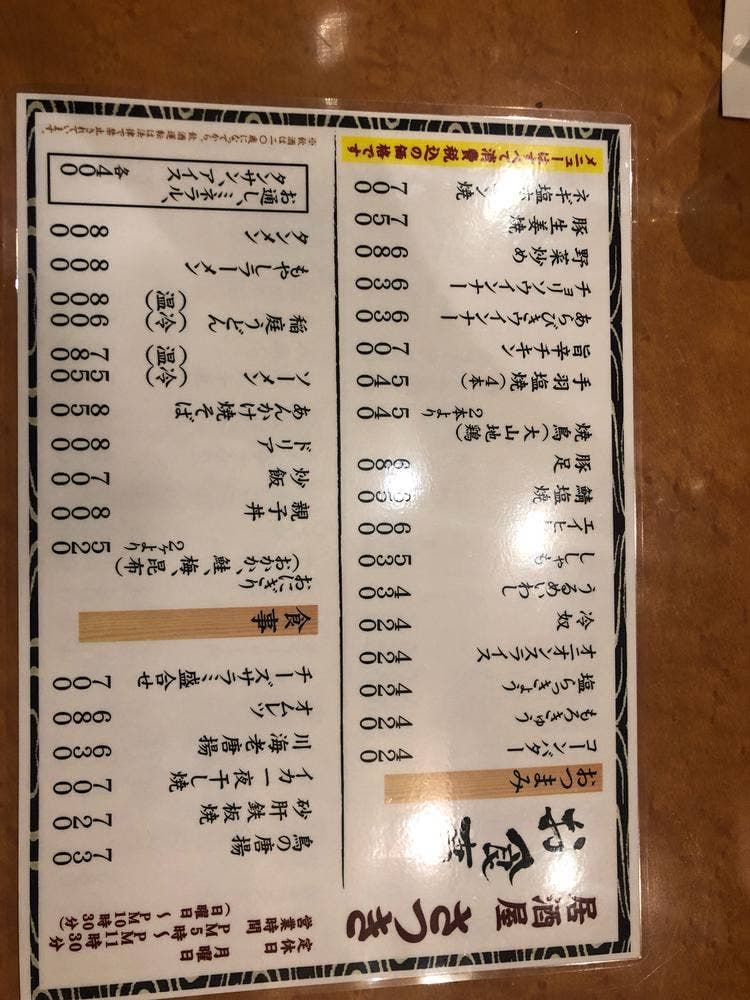 居酒屋 さつき
定休日 月曜日
営業時間 PM5時〜PM11時30分
(日曜日 〜PM10時30分)
お食事
おつまみ
コーンバター 420
もろきゅう 420
塩らっきょう 420
オニオンスライス 420
冷奴 420
うるめいわし 430
ししゃも 530
エイヒレ 600
鯖塩焼 650
豚足 680
焼鳥(大山地鶏) 2本より 540
手羽塩焼(4本) 540
旨辛チキン 700
あらびきウインナー 630
チョリソウインナー 630
野菜炒め 680
豚生姜焼 750
ネギ塩ホルモン焼 700
メニューはすべて消費税込の価格です
鳥の唐揚 730
砂肝鉄板焼 720
イカ一夜干し焼 700
川海老唐揚 630
オムレツ 680
チーズサラミ盛合せ 700
食事
おにぎり
(おかか、鮭、梅、昆布) 2ヶより 520
親子丼 800
炒飯 700
ドリア 800
あんかけ焼そば 850
ソーメン (冷) 550
(温) 780
稲庭うどん (冷) 600
(温) 800
もやしラーメン 800
タンメン 800
お通し、ミネラル、
タンサン、アイス 各400
※飲酒は二〇歳になってから、飲酒運転は法律で禁止されています。